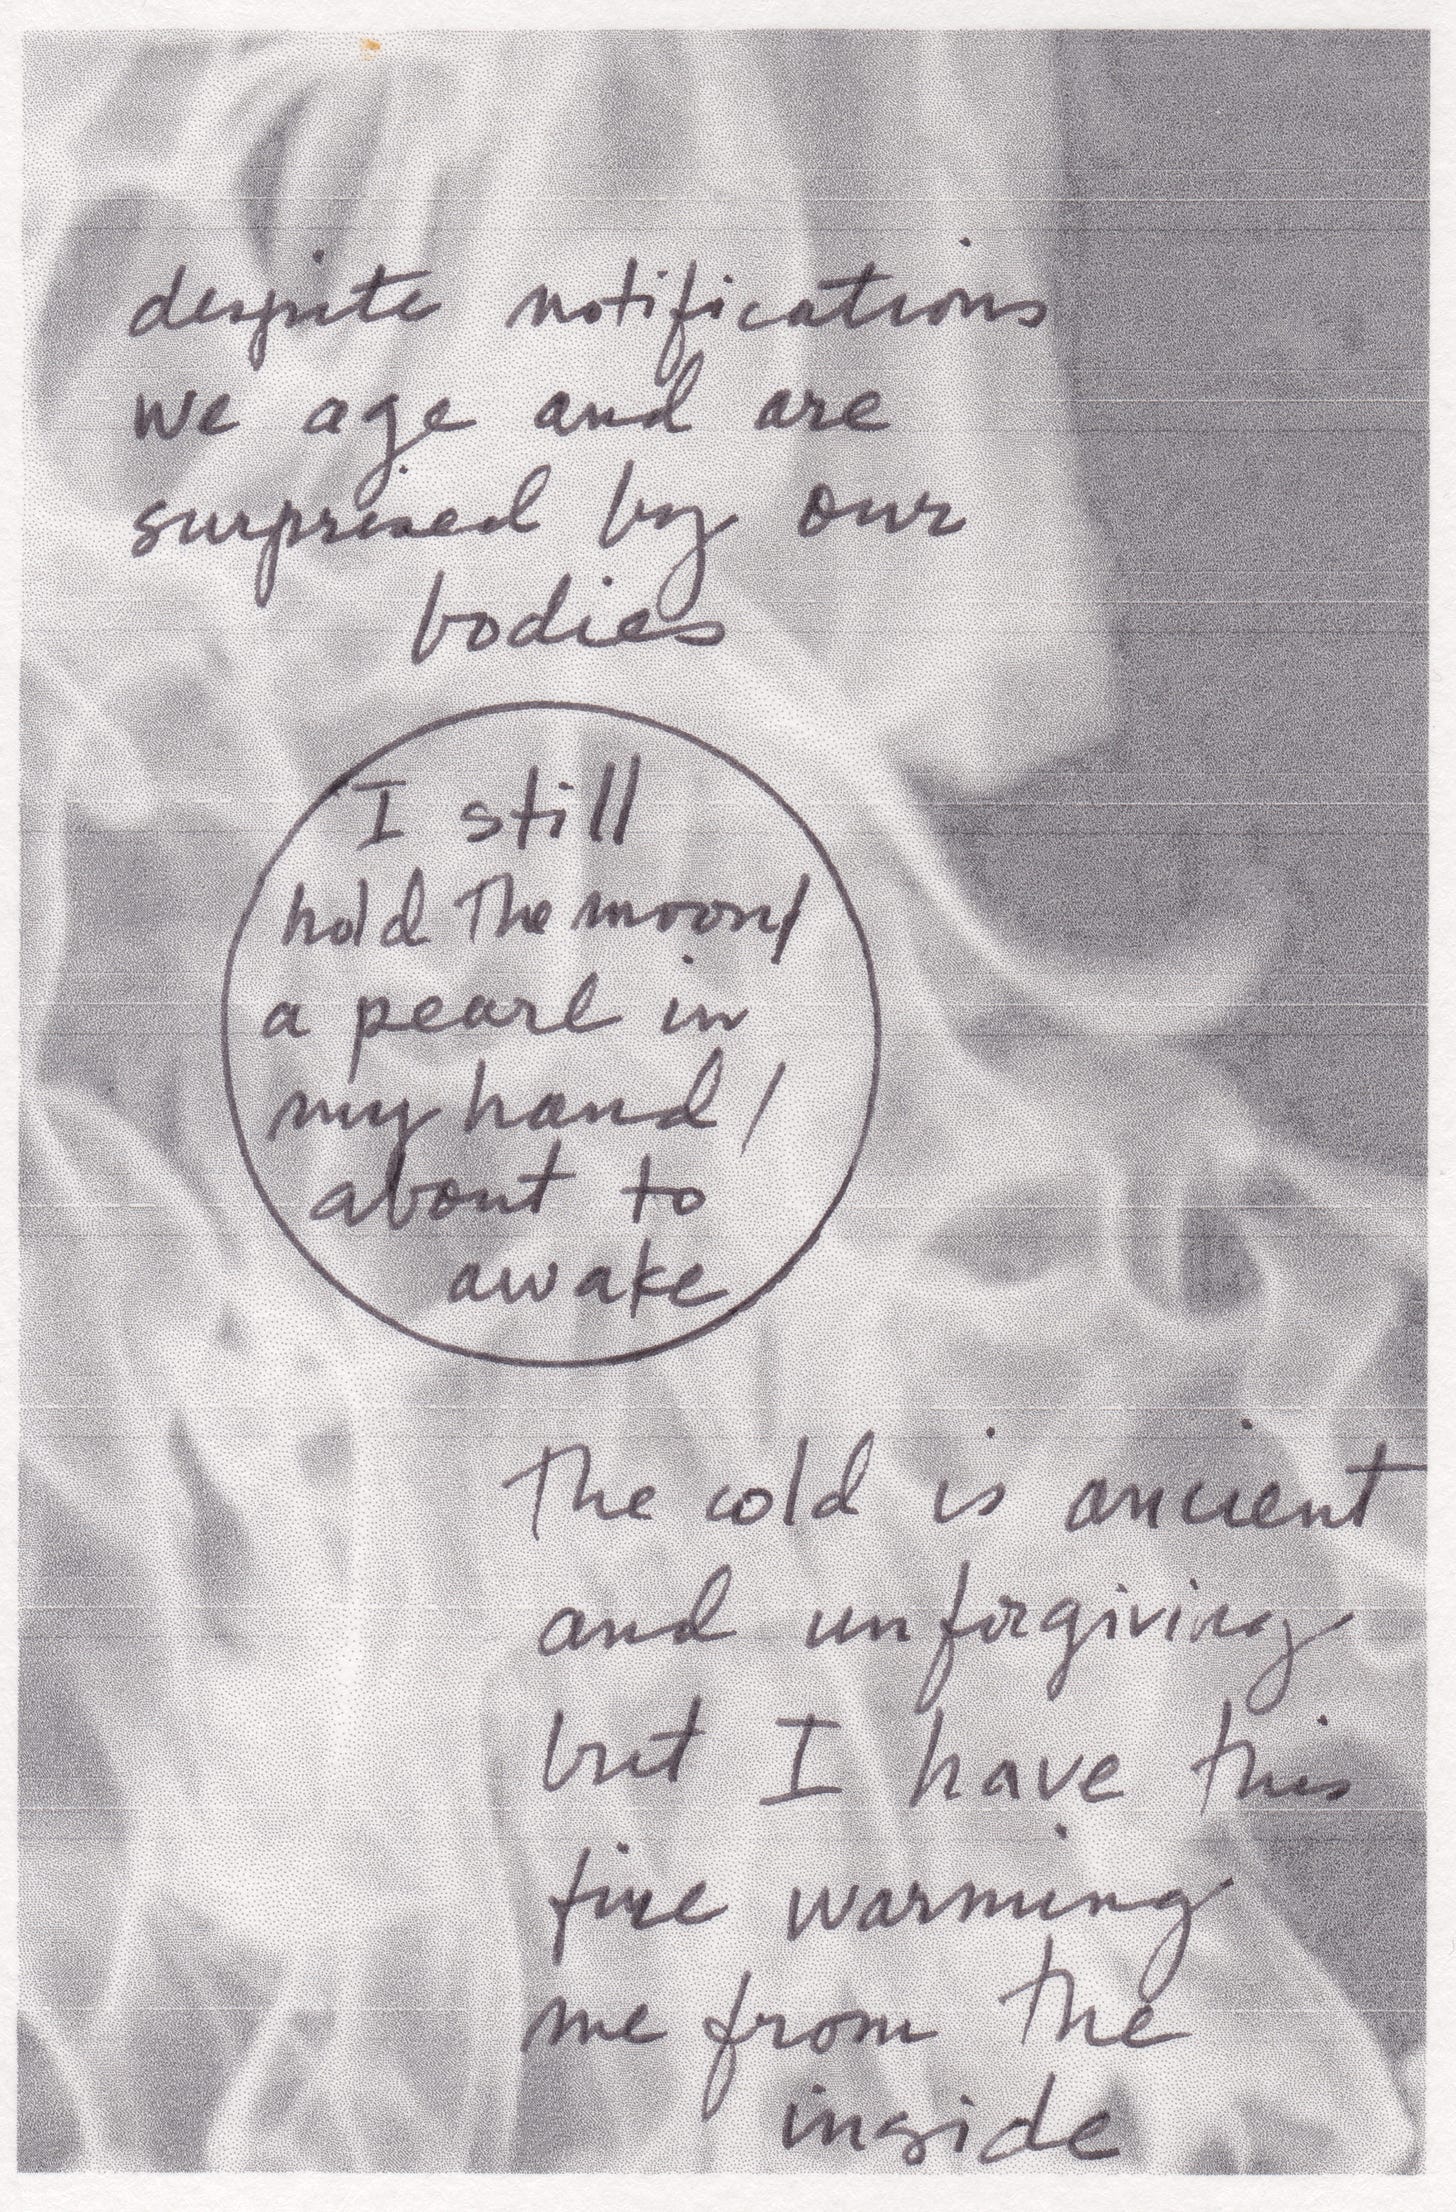 despite notifications
we age and are
surprised by our
bodies
I still
hold the moon/
a pearl in
my hand/
about to
awake
The cold is ancient
and unforgiving
but I have this
fire warming
me from the
inside